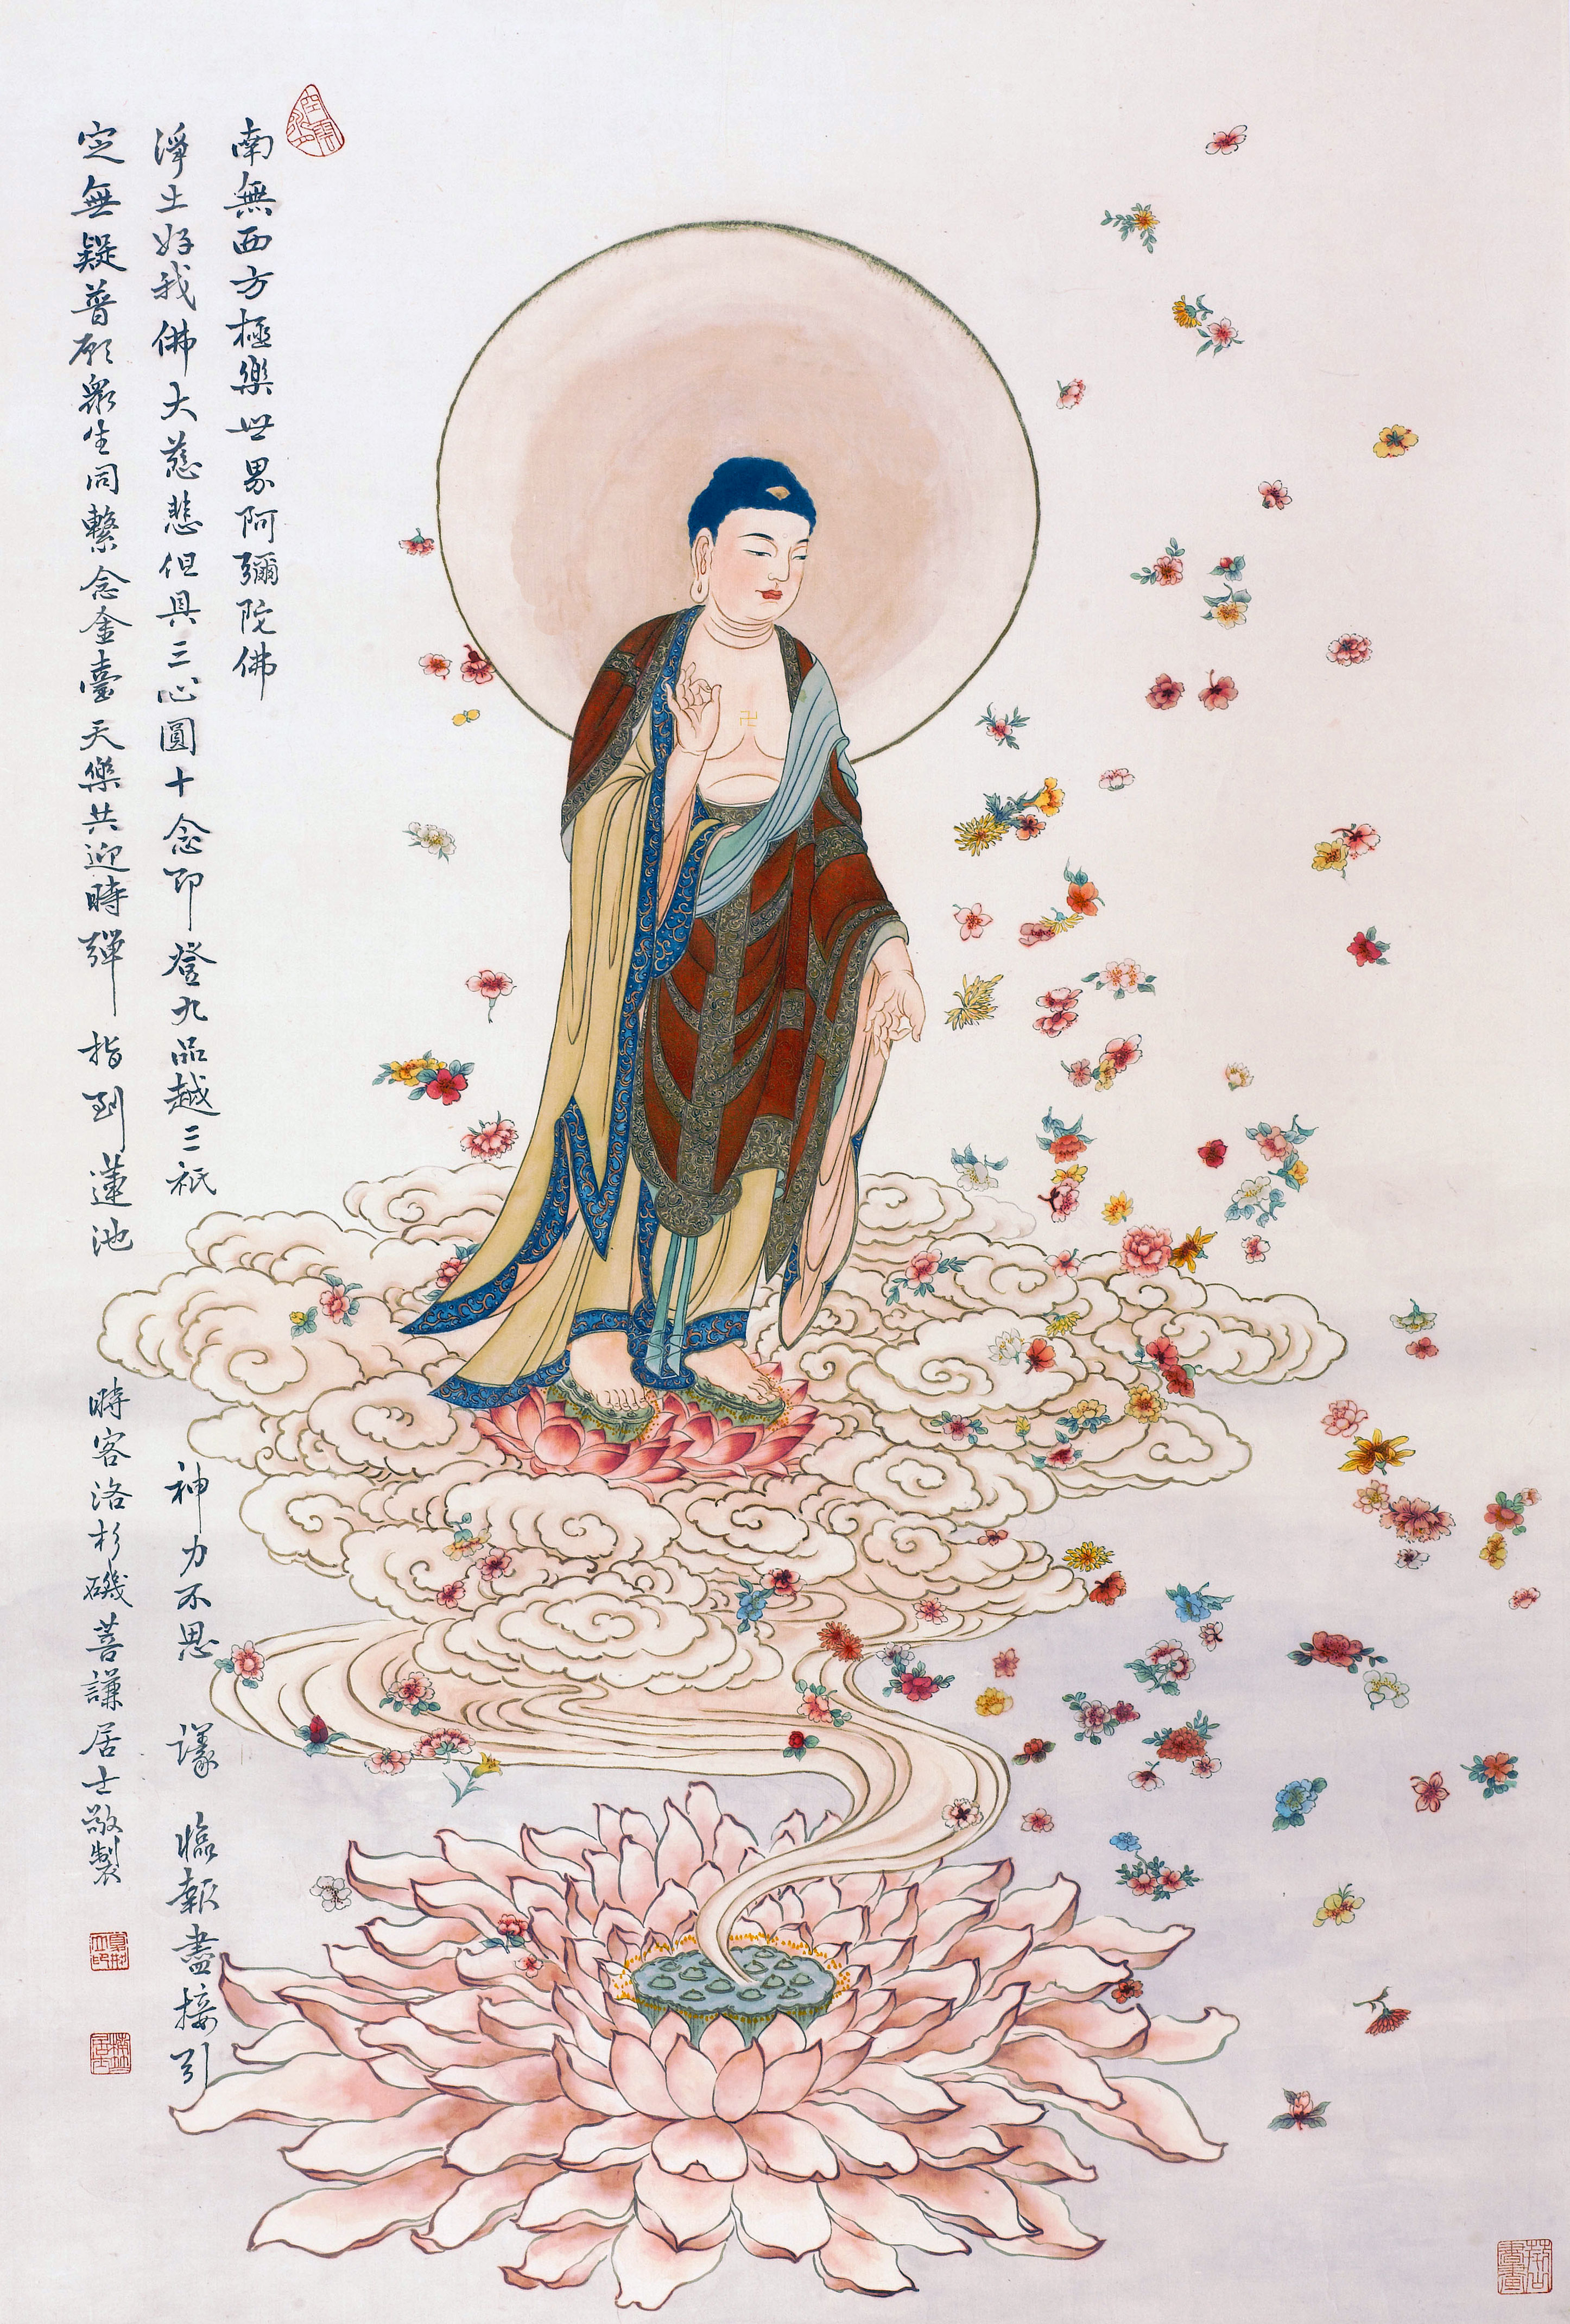 南無西方極樂世界阿彌陀佛
淨土好我佛大慈悲但具三心圓十念即登九品越三祇神力不思議臨報盡接引
定無疑普願眾生同繫念金臺天樂共迎時彈指到蓮池
時客洛杉磯菩謙居士敬製